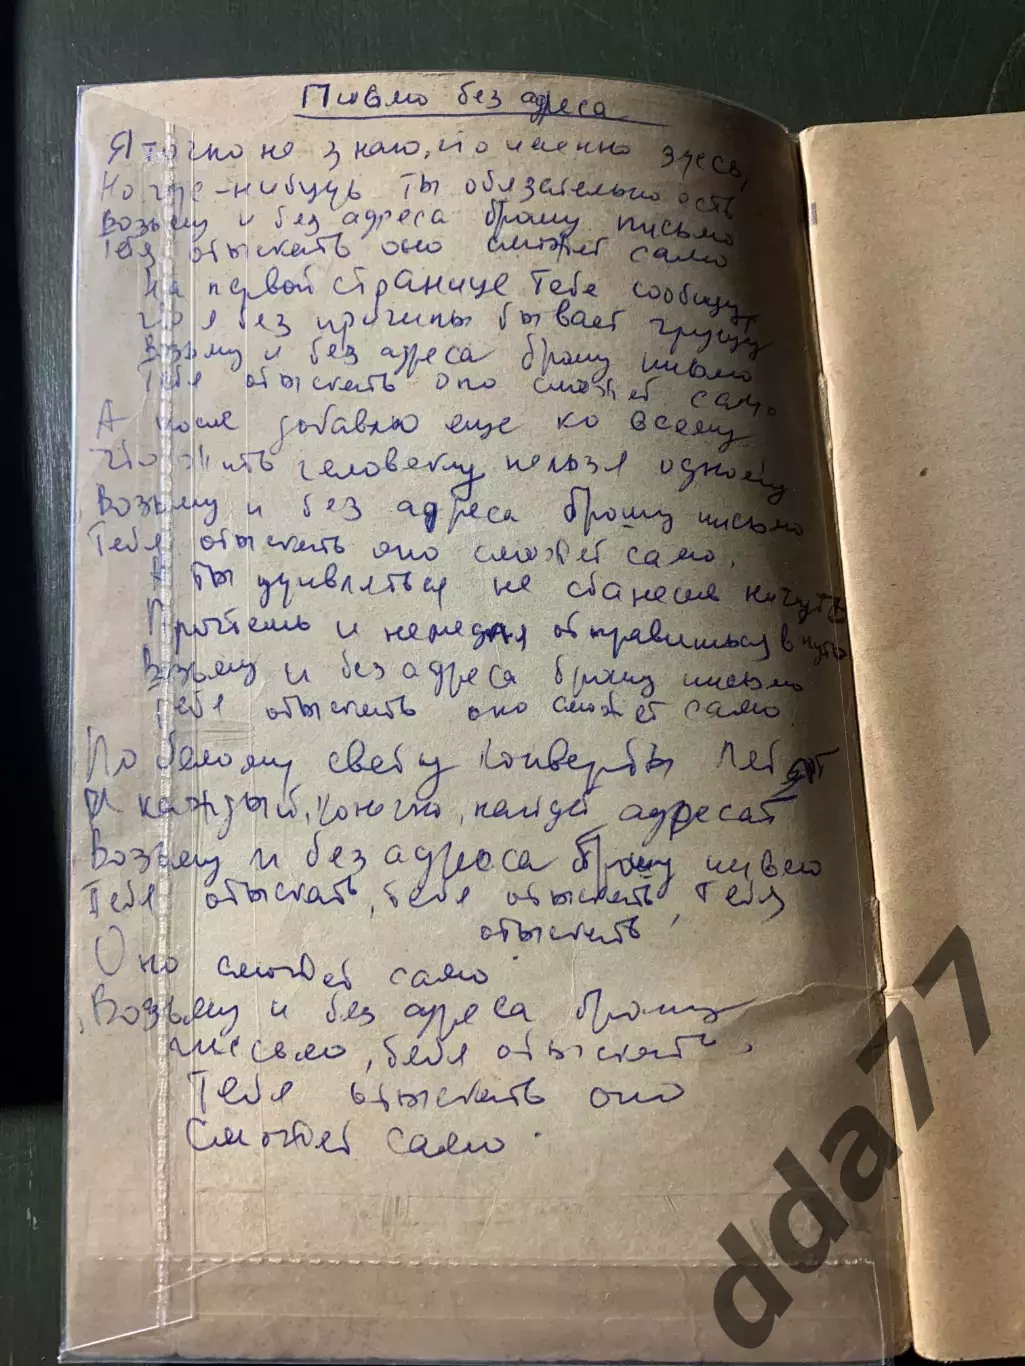 Письмо без адреса
Я точно не знаю, что именно здесь,
Но где-нибудь ты обязательно есть
Возьму и без адреса брошу письмо
Тебя отыскать оно сможет само
На первой странице тебе сообщу,
что я без причины бывает грущу
Возьму и без адреса брошу письмо
Тебя отыскать оно сможет само
А после добавлю еще ко всему
что жить человеку нельзя одному
Возьму и без адреса брошу письмо
Тебя отыскать оно сможет само.
А ты удивляться не станешь ничуть
Прочтешь и немедля отправишься в путь
Возьму и без адреса брошу письмо
Тебя отыскать оно сможет само
По белому свету конверты летят
И каждый, конечно, найдет адресат
Возьму и без адреса брошу письмо
Тебя отыскать, тебя отыскать, тебя
отыскать
Оно сможет само
Возьму и без адреса брошу
письмо, тебя отыскать,
Тебя отыскать оно
Сможет само.
dda77